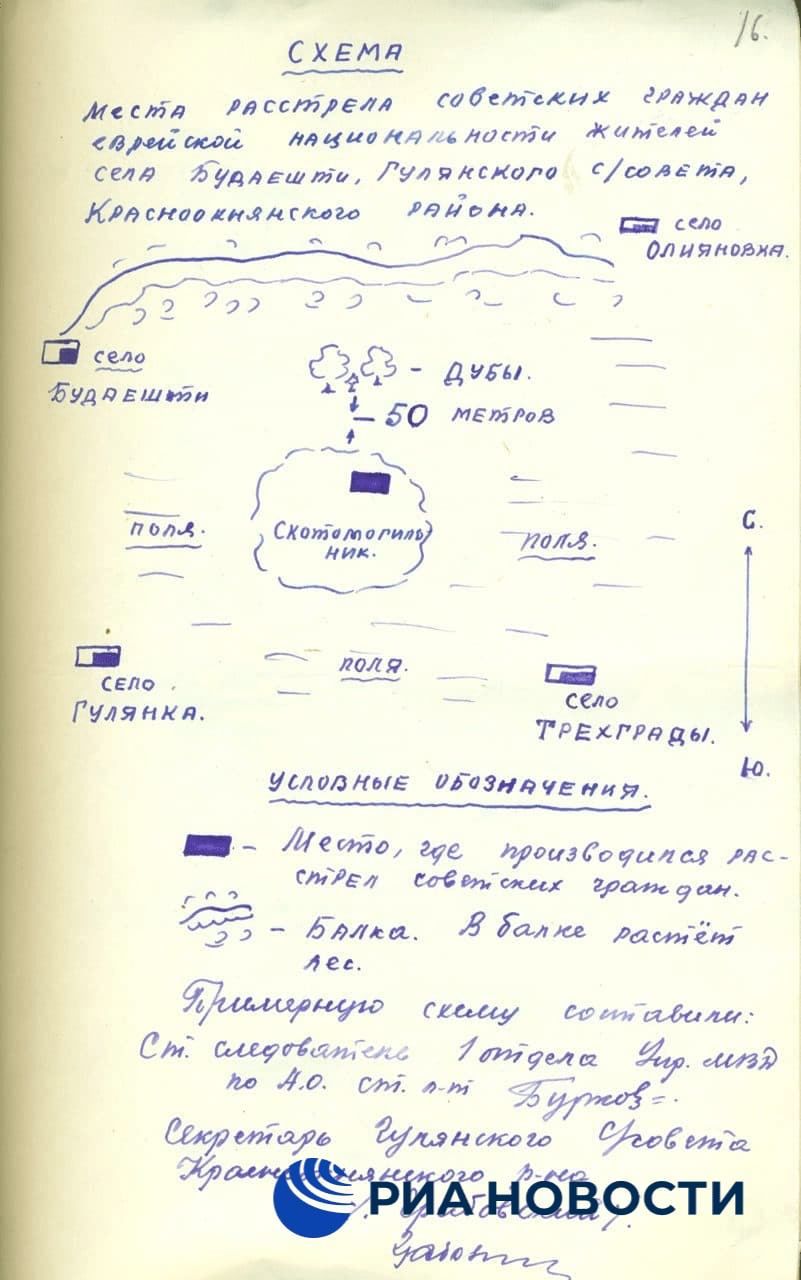 16.
СХЕМА
МЕСТА РАССТРЕЛА СОВЕТСКИХ ГРАЖДАН
ЕВРЕЙСКОЙ НАЦИОНАЛЬНОСТИ ЖИТЕЛЕЙ
СЕЛА БУДАЕШТИ, ГУЛЯНСКОГО С/СОВЕТА,
КРАСНООКНЯНСКОГО РАЙОНА.
село
ОЛИЯНОВКА.
село
БУДАЕШТИ
- ДУБЫ.
50 МЕТРОВ
Скотомогиль
ник.
ПОЛЯ.
ПОЛЯ.
С.
ПОЛЯ.
СЕЛО
ГУЛЯНКА.
село
ТРЕХГРАДЫ.
Ю.
УСЛОВНЫЕ ОБОЗНАЧЕНИЯ.
- Место, где производился рас-
стрел советских граждан.
- Балка. В балке растёт
лес.
Примерную схему составили:
Ст. следователь 1 отдела Упр. МВД
по А.О. ст. л-т
Секретарь Гулянского С/совета
р-на
РИА НОВОСТИ